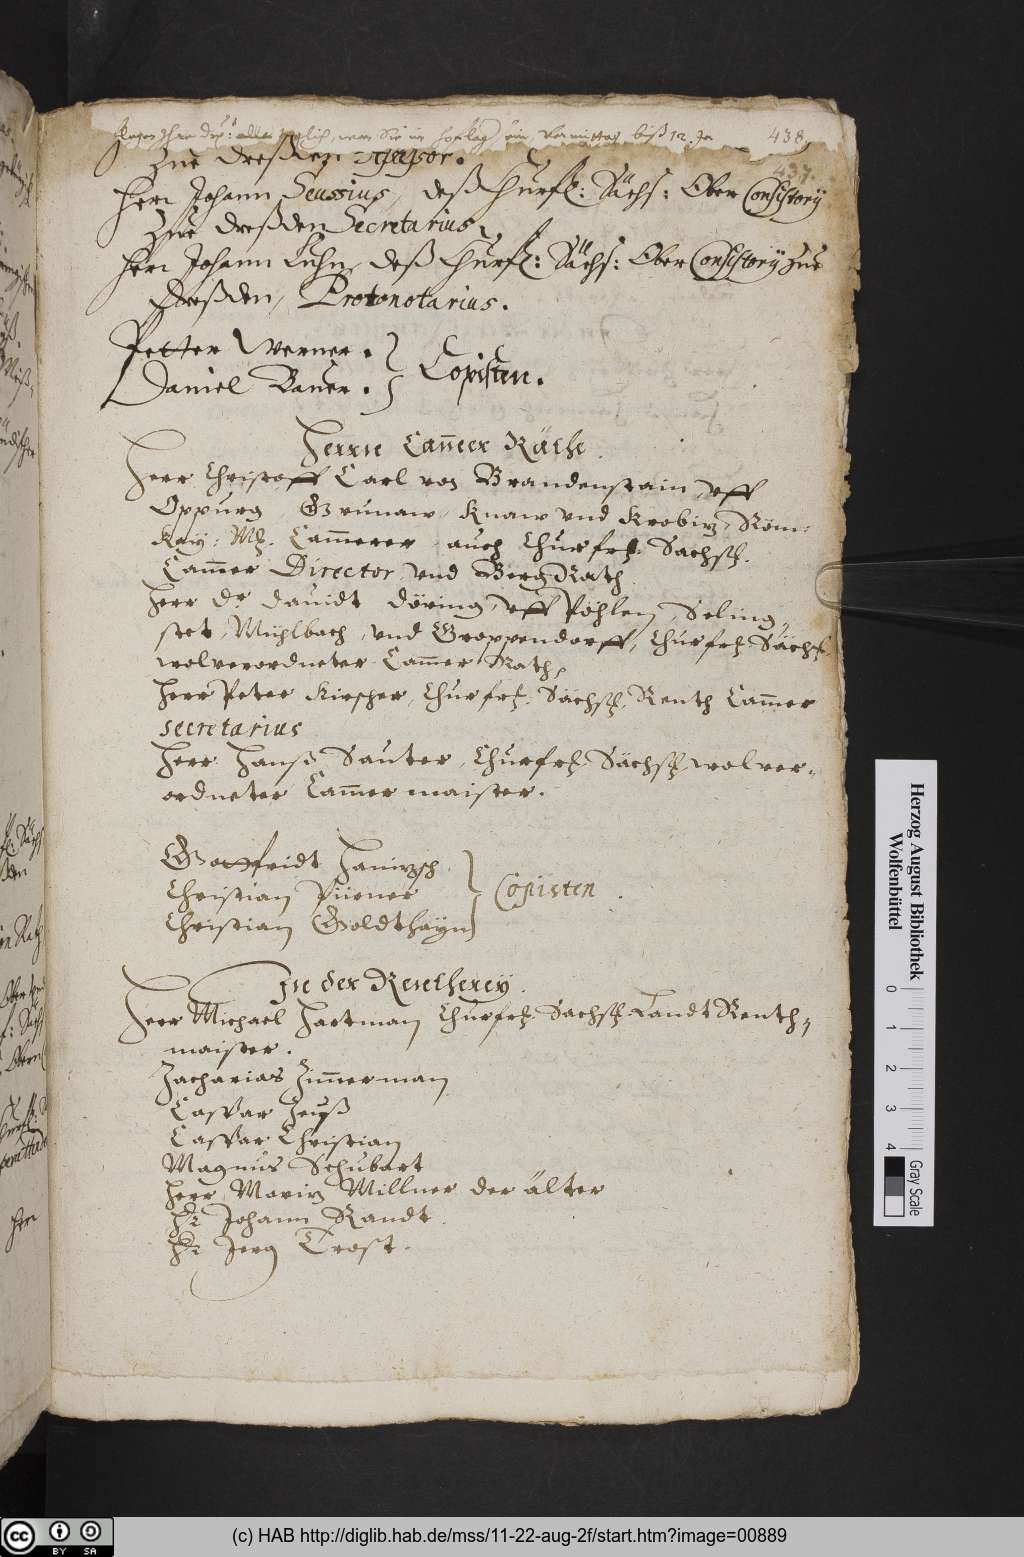 438.
437.
Zue Dreßden Assessor.
Herr Johann Seussius, deß Churfl: Sächs: Ober Consistorÿ
Zue Dreßden Secretarius,
Herr Johann Luhn, deß Churfl: Sächs: Ober Consistorÿ Zue
Dreßden, Protonotarius.
Petter Werner.
Daniel Bauer. } Copisten.
Herrn Cam̅er Räthe.
Herr Christoff Carl von Brandenstain, uff
Oppurg, Grunaw, Knaw und Krobitz, Röm:
Kay: Mt. Cammerer, auch Churfrl. Sächsl.
Cam̅er Director und Berg Rath.
Herr Dr Dauidt Döring, uff Pöhlen, Seling,
stet, Mühlbach, und Groppendorff, Churfrl. Sächsl.
wolverordneter Cam̅er Rath,
Herr Peter Kirscher, Churfrl. Sächsl. Renth Cam̅er
secretarius
Herr Hanß Sauter, Churfrl. Sächsl. wolver=
ordneter Cam̅er maister.
Gottfridt
Christian
Christian Goldthayn } Copiisten.
In der Rentherey.
Herr Michael Hartman Churfrl. Sächsl. Landt Renth=
maister.
Zacharias Zim̅erman
Caspar Zeuß
Caspar Christian
Magnus Schubart
Herr Moritz Millner der älter
Hr Johann Randt
Hr Jerg Trost.
Herzog August Bibliothek
Wolfenbüttel
0 1 2 3 4
Gray Scale
cc BY SA
(c) HAB http://diglib.hab.de/mss/11-22-aug-2f/start.htm?image=00889